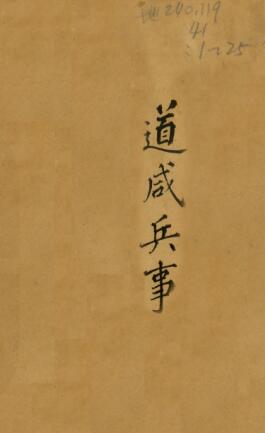 地240.119
41
:1-225
道咸兵事